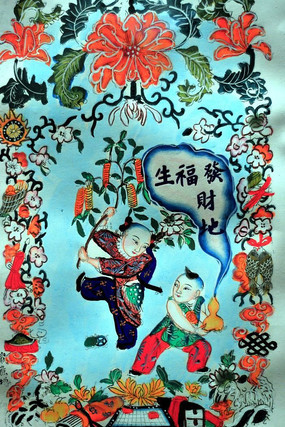 發福生
財地